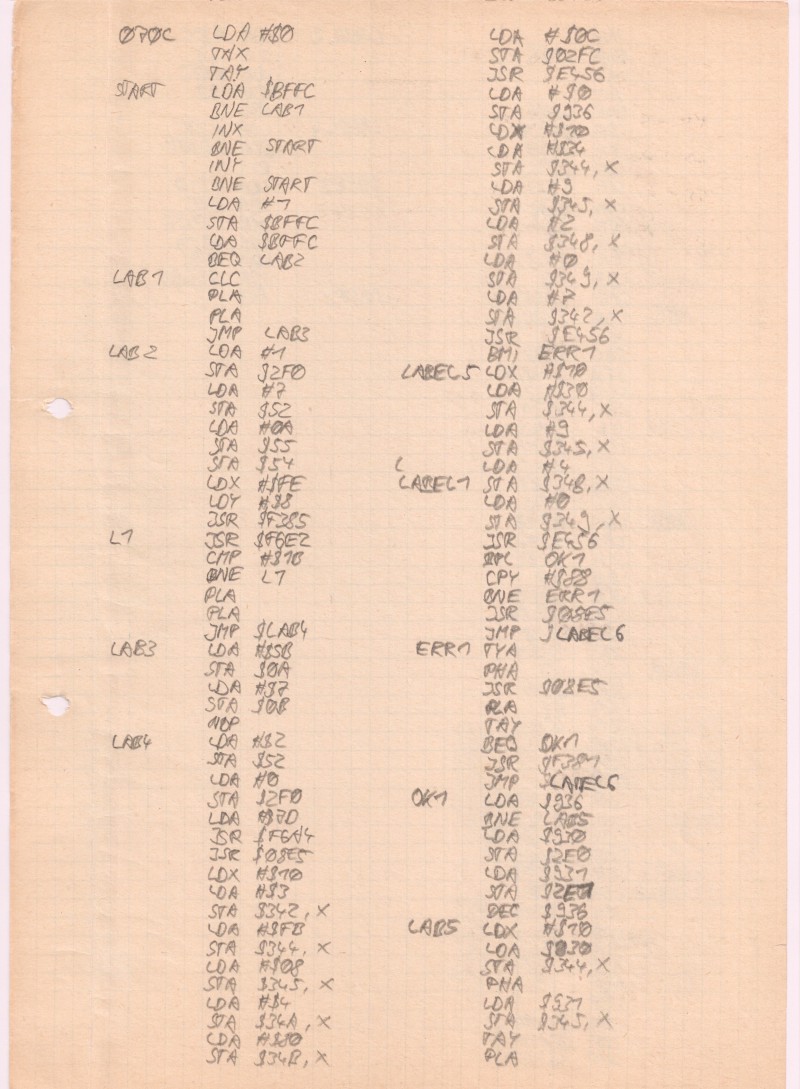 070C LDA #$0
TAX
TAY
START LDA $BFFC
BNE LAB1
INX
BNE START
INY
BNE START
LDA #1
STA $BFFC
LDA $BFFC
BEQ LAB2
LAB1 CLC
PLA
PLA
JMP LAB3
LAB2 LDA #1
STA $2F0
LDA #7
STA $52
LDA #0A
STA $55
STA $54
LDX #$FE
LDY #$8
JSR $F385
L1 JSR $F6E2
CMP #$1B
BNE L1
PLA
PLA
JMP $LAB4
LAB3 LDA #$5B
STA $0A
LDA #$7
STA $0B
NOP
LAB4 LDA #$2
STA $52
LDA #0
STA $2F0
LDA #$7D
JSR $F6A4
JSR $08E5
LDX #$10
LDA #$3
STA $342,X
LDA #$FB
STA $344,X
LDA #$08
STA $345,X
LDA #$4
STA $34A,X
LDA #$80
STA $34B,X
LDA #$0C
STA $02FC
JSR $E456
LDA #$0
STA $936
LDX #$10
LDA #$34
STA $344,X
LDA #9
STA $345,X
LDA #2
STA $348,X
LDA #0
STA $349,X
LDA #7
STA $342,X
JSR $E456
BMI ERR1
LABEL5 LDX #$10
LDA #$30
STA $344,X
LDA #9
STA $345,X
LDA #4
LABEL1 STA $348,X
LDA #0
STA $349,X
JSR $E456
BPL OK1
CPY #$88
BNE ERR1
JSR $08E5
JMP $LABEL6
ERR1 TYA
PHA
JSR $08E5
PLA
TAY
BEQ OK1
JSR $F381
JMP $LABEL6
OK1 LDA $936
BNE LAB5
LDA $930
STA $2E0
LDA $931
STA $2E1
DEC $936
LAB5 LDX #$10
LDA $930
STA $344,X
PHA
LDA $931
STA $345,X
TAY
PLA